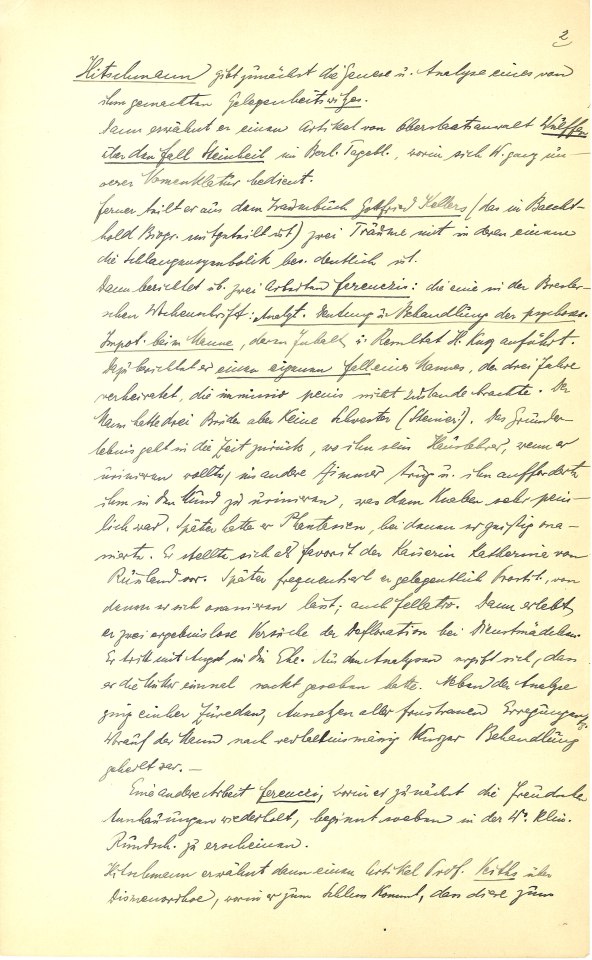 2
Hitschmann gibt zunächst die Genese u. Analyse eines von
ihm gemachten Gelegenheitswitzes.
Dann erwähnt er einen Artikel von Oberstaatsanwalt Wulffen
über den Fall Steinheil im Berl. Tagebl., worin sich W. ganz un-
serer Nomenklatur bedient.
Ferner teilt er aus dem Traumbuch Gottfried Kellers (das in Baecht-
hold Biogr. mitgeteilt ist) zwei Träume mit in deren einem
die Schlangensymbolik bes. deutlich ist.
Dann berichtet er üb. zwei Arbeiten Ferenczis: die eine in der Bresler-
schen Wochenschrift: Analyt. Deutung u. Behandlung der psychosex.
Impot. beim Manne, deren Inhalt u. Resultat H. kurz anführt.
Dazu berichtet er einen eigenen Fall eines Mannes, der drei Jahre
verheiratet, die immissio penis nicht zustande brachte. Der
Mann hatte drei Brüder aber keine Schwester (Steiner!). Das Grunder-
lebnis geht in die Zeit zurück, wo ihn sein Hauslehrer, wenn er
urinieren wollte, ins andere Zimmer trug u. ihn aufforderte
ihm in den Mund zu urinieren, was dem Knaben sehr pein-
lich war. Später hatte er Phantasien, bei denen er geistig ona-
nierte. Er stellte sich als Favorit der Kaiserin Katherina von
Russland vor. Später frequentiert er gelegentlich Prostit., von
denen er sich onanieren lässt; auch Fellatio. Dann erlebt
er zwei ergebnislose Versuche der Defloration bei Dienstmädchen.
Er tritt mit Angst in die Ehe. Aus den Analysen ergibt sich, dass
er die Mutter einmal nackt gesehen hatte. Neben der Analyse
ging einher Zureden, Aussetzen aller frustranen Erregungen
Worauf der Mann nach verhältnismässig kurzer Behandlung
geheilt war. —
Eine andere Arbeit Ferenczi, worin er zunächst die Freudschen
Anschauungen wiederholt, beginnt soeben in der W. klin.
Rundsch. zu erscheinen.
Hitschmann erwähnt dann einen Artikel Prof. Veiths über
Dismenorrhoe, worin er zum Schluss kommt, dass diese zum